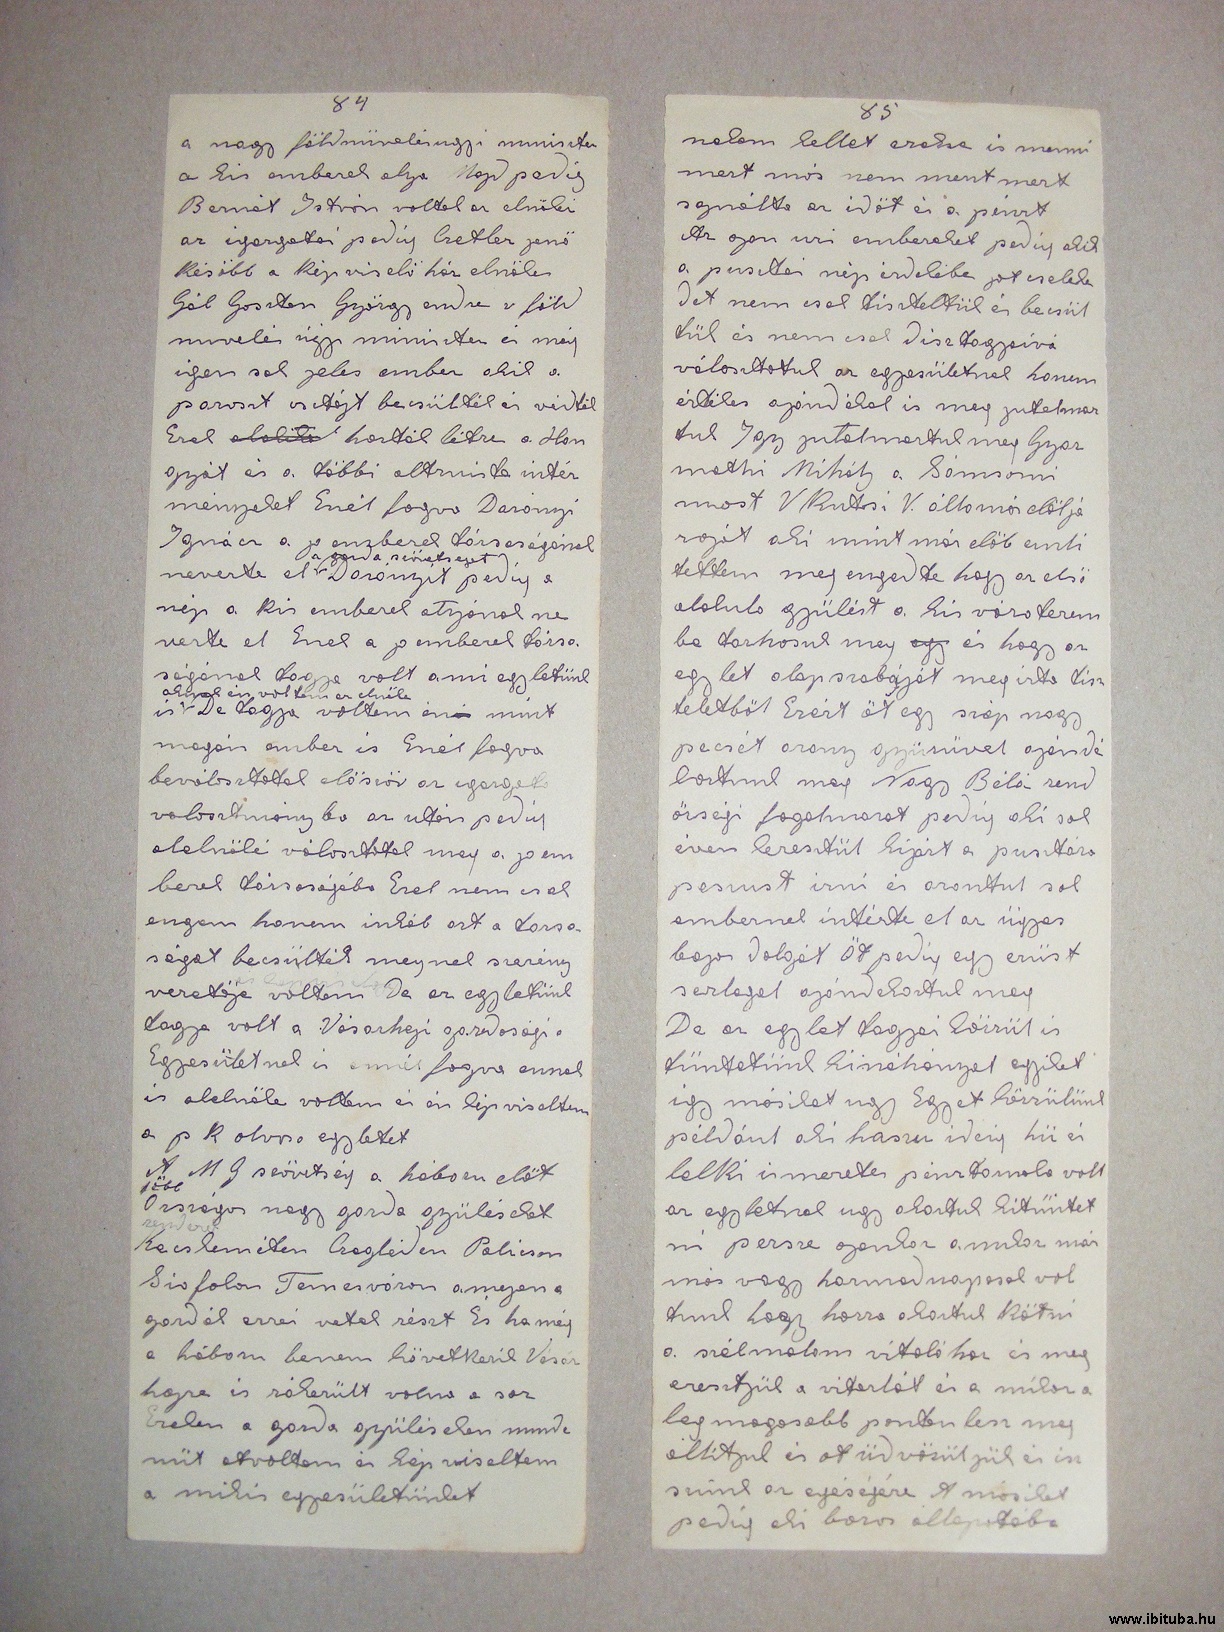 84
a nagy földmüvelésügyi miniszter
a kis emberek atya Majd pedig
Bernát István voltak az elnökei
az igazgatói pedig Czetler jenő
később a képviselő ház elnöke
Gál Gaszton György endre v föld
muvelés ügyi miniszter és még
igen sok jeles ember akik a
paraszt osztájt becsülték és védték
Ezek hozták létre a Han
gyát és a többi altruista intéz
ményeket Enél fogva Darányi
Ignácz a p emberek társaságának
a gazda szövetséget
nevezte el Darányit pedig a
nép a kis emberek atyának ne
vezte el Enek a p emberek társa
ságának tagja volt a mi egyletünk
akinek én voltam az elnöke
is De tagja voltam én mint
magán ember is Enél fogva
beválasztotak elöször az igazgató
valasztmányba az után pedig
alelnöké választotak meg a p em
berek társaságába Ezek nem csak
engem hanem inkáb azt a társa
ságot becsülték meynek szerény
vezetője voltam De az egyletünk
tagja volt a Vásárheji gazdasági
Egyesületnek is ennél fogva ennek
is alelnöke voltam és én képviseltem
a p k olvasó egyletet
A M G szövetség a háboru elött
több
Országos nagy gazda gyüléseket
rendezet
Kecskeméten Czegléden Palicson
Siofokon Temesváron amejen a
gazdák errei vetek részt És ha még
a háboru be nem következik Vásár
hejre is rákerült volna a sor
Ezeken a gazda gyüléseken minde
nüt otvoltam és képviseltem
a mi kis egyesületünket
85
nekem kellet ezekre is menni
mert más nem ment mert
sajnálta az időt és a pénzt
Az ojan uri embereket pedig akik
a pusztai nép érdekébe jot cseleke
det nem csak tiszteltük és becsül
tük és nem csak disz tagjaivá
választotuk az egyesületnek hanem
értékes ajándékal is meg jutalmaz
tuk Igy jutalmaztuk meg Gyar
mathi Mihály a Sámsoni
most V Kutasi V. állomás elöljá
roját aki mint már elöb emli
tettem meg engedte hogy az első
alakulo gyülést a kis váróterem
ba tarhasuk meg és hogy az
egylet alapszabáját megirta tisz
teletböl Ezért őt egy szép nagy
pecsét arany gyürüvel ajándé
koztunk meg Nagy Béla rend
őrségi fogalmazot pedig aki sok
éven keresztül kijárt a pusztára
pasust irni és azontul sok
embernek intézte el az ügyes
bajos dolgát Öt pedig egy ezüst
serlegel ajándékoztuk meg
De az egylet tagjai közzül is
tüntetünk ki néhányat egyiket
igy másikat ugy Egyet közzülünk
például aki haszu ideig hü és
lelki ismeretes pénztarnoka volt
az egyletnek ugy akartuk kitüntet
ni persze ojankor amikor már
más vagy harmadnaposak vol
tunk hogy hozzá akartuk kötni
a szélmalom vitolához és meg
eresztjük a vitorlát és a mikor a
leg magosabb ponton lesz meg
állitjuk és ot üdvözüljük és isz
szunk az egéségére A másikat
pedig aki boros állapotába
www.ibituba.hu